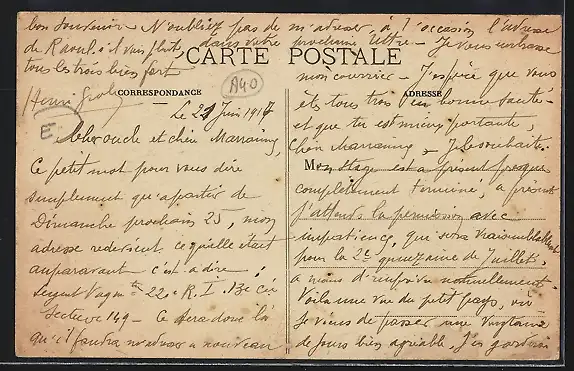 bon souvenir. N'oubliez pas de m'adresser à l'occasion l'adresse
de Raoul s'il vous plaît, dans votre prochaine lettre - Je vous embrasse
tous les trois bien fort
Henri
CARTE POSTALE
CORRESPONDANCE
ADRESSE
A40
E
Le 21 Juin 1917
et chère Marraine,
Ce petit mot pour vous dire
simplement qu'à partir de
Dimanche prochain 25, mon
adresse redevient ce qu'elle était
auparavant c'est à dire :
Sergent 22e R. I. 13e Cie
Secteur 149 - Ce sera donc là
qu'il faudra m'adresser à nouveau
mon courrier - J'espère que vous
êtes tous trois en bonne santé
et que tu es mieux portante,
chère Marraine, Je le souhaite.
Mon stage est à présent presque
complètement terminé, à présent
j'attends la permission avec
impatience, qui sera vraisemblablement
pour la 2e quinzaine de Juillet,
à moins d'imprévu naturellement.
Voilà une vue du petit pays, où
je viens de passer une
de jours bien agréable, J'en garderai